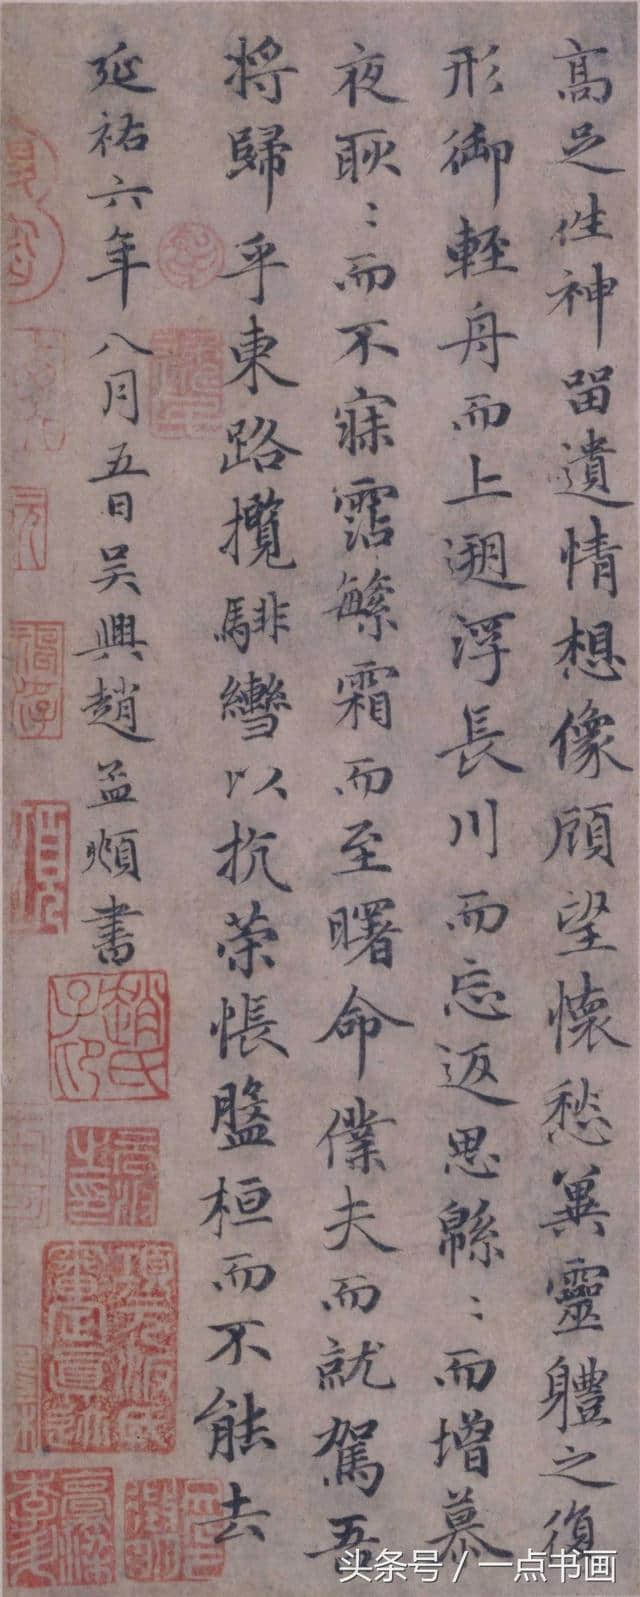 高足往神留遺情想像顧望懷愁冀靈體之復
形御輕舟而上遡浮長川而忘返思緜〻而增慕
夜耿〻而不寐霑繁霜而至曙命僕夫而就駕吾
將歸乎東路攬騑轡以抗策悵盤桓而不能去
延祐六年八月五日吴興趙孟頫書
趙氏子昂
頭条号 / 一点书画